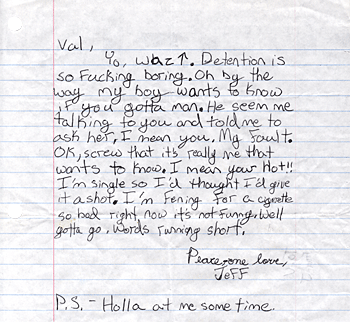 Val,
Yo, waz↑. Detention is
so Fucking boring. Oh by the
way my boy wants to know
if you gotta man. He seem me
talking to you and told me to
ask her, I mean you. My Fault.
OK, screw that it's really me that
wants to know. I mean your Hot!!
I'm single so I'd thought I'd give
it a shot. I'm Fening for a cigarette
so bad right now it's not funny. Well
gotta go. Words running short.
Peace, one love,
JeFF
P.S. - Holla at me some time.